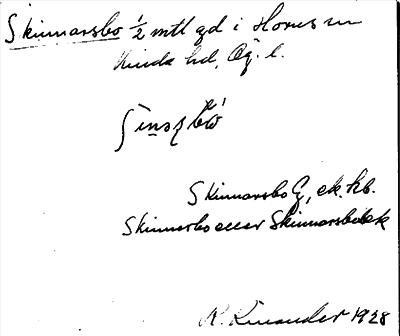 Skinnarsbo ½ mtl gd i Horns sn
Kinda hd, Ög. l.
Skinnarsbo G, ek. kb.
Skinnerbo eller Skinnarsbo
R. Kinander 1928